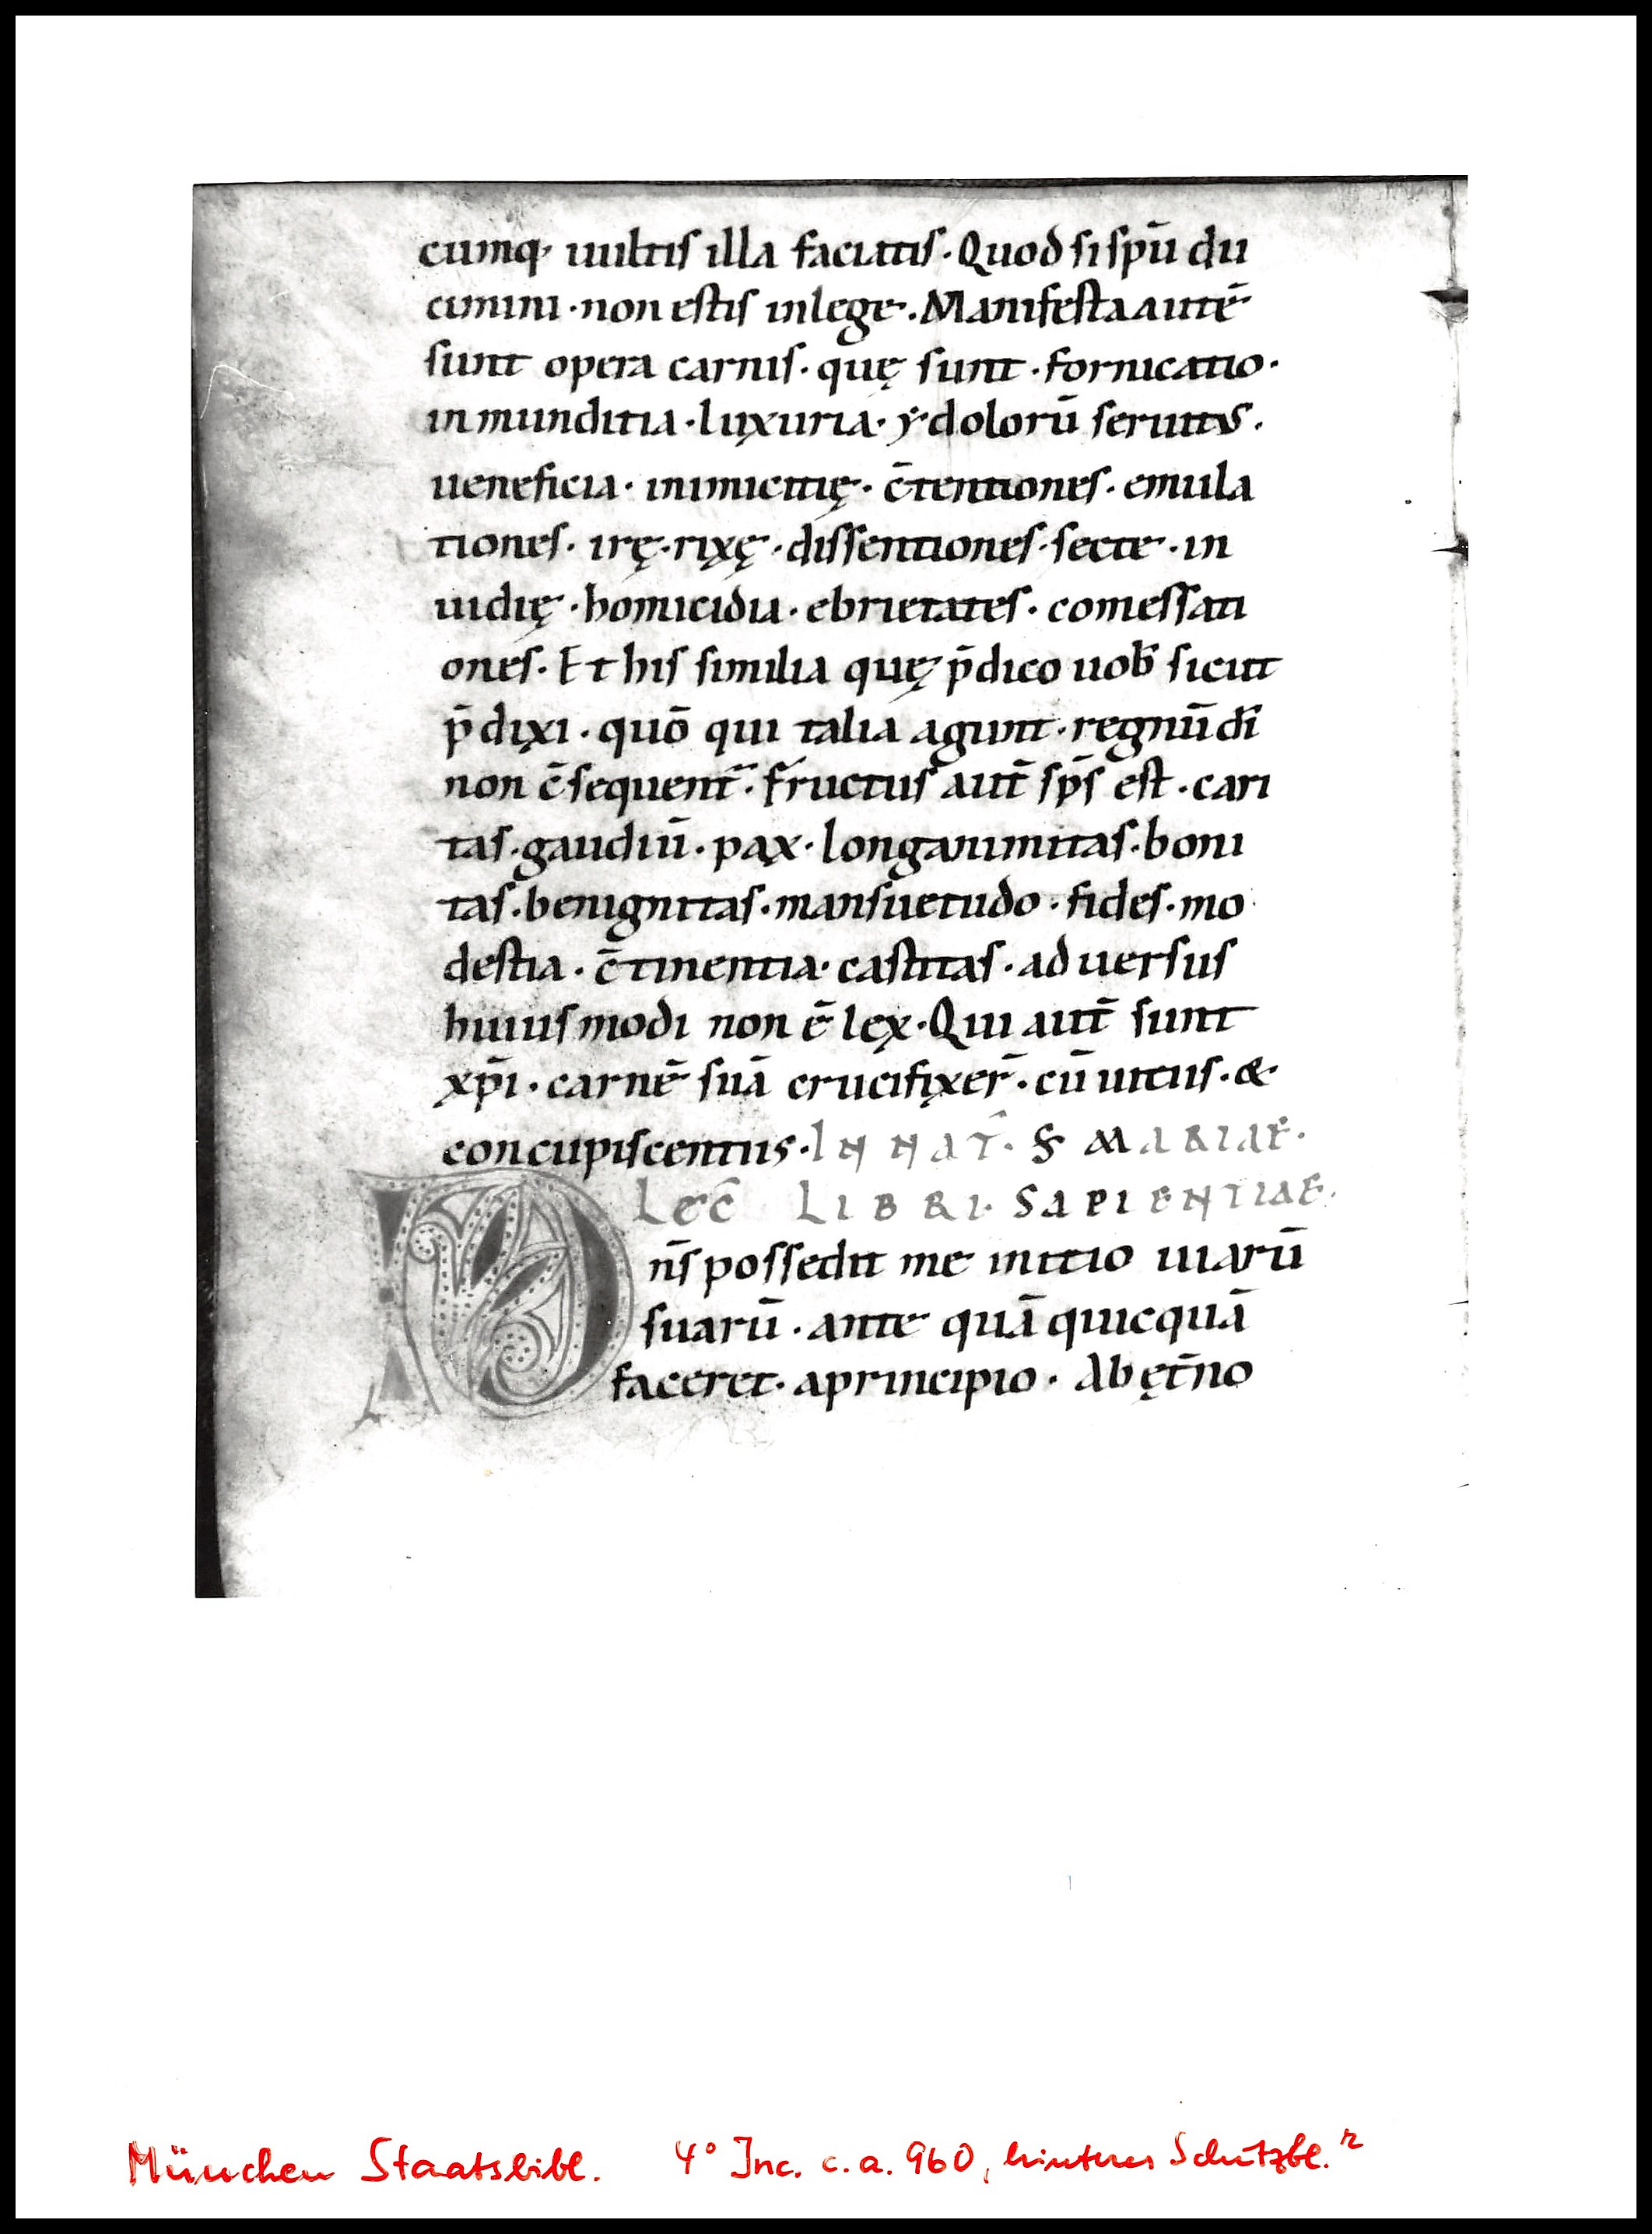 cumq; uultis illa faciatis. Quod si spū du
cimini. non estis in lege. Manifesta autē
sunt opera carnis. quę sunt. fornicatio.
inmunditia. luxuria. ydolorū seruitus.
ueneficia. inimicitię. c̄tentiones. emula
tiones. irę. rixę. dissentiones. secte. in
uidię. homicidia. ebrietates. comessati
ones. Et his similia quę p̄dico uob̄ sicut
p̄dixi. quō qui talia agunt. regnū dī
non c̄sequent̄. fructus aut̄ sp̄s est. cari
tas. gaudiū. pax. longanimitas. boni
tas. benignitas. mansuetudo. fides. mo
destia. c̄tinentia. castitas. aduersus
huiusmodi non ē lex. Qui aut̄ sunt
xp̄i. carnē suā crucifixer̄. cū uitiis. &
concupiscentiis. IN NAT̄. S MARIAE.
LEC̄ LIBRI SAPIENTIAE.
Dn̄s possedit me initio uiarū
suarū. ante quā quicquā
faceret. a principio. Ab ęt̄no
München Staatsbibl. 4° Inc. c. a. 960, hinteres Schutzbl. r